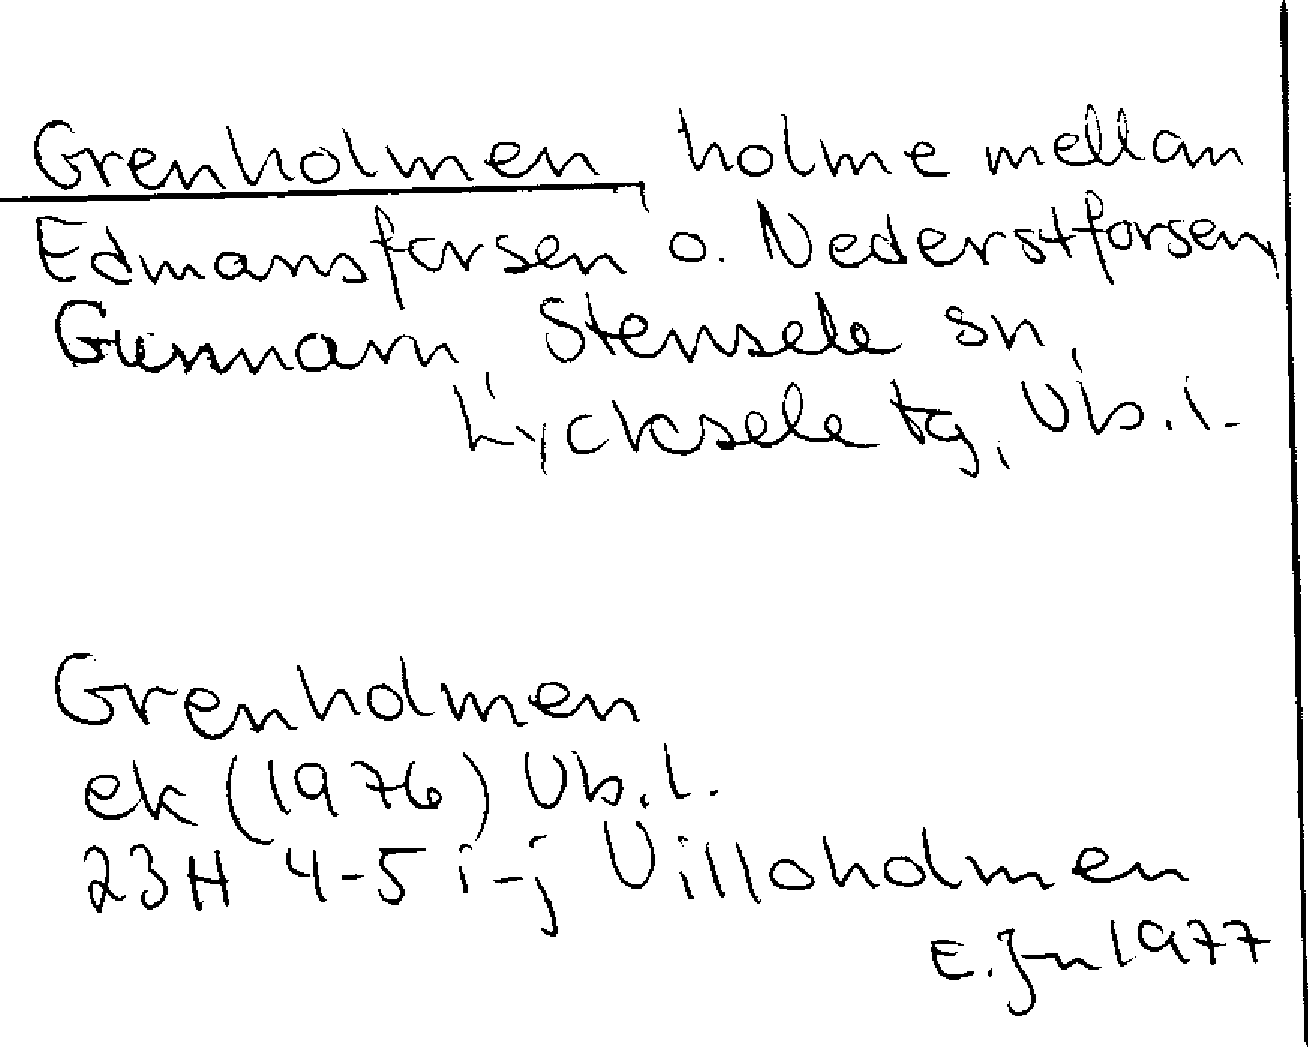 Grenholmen, holme mellan
Edmansforsen o. Nederstforsen,
Gunnarn Stensele sn,
Lycksele tg, Vb. l.
Grenholmen
ek (1976) Vb. l.
23H 4-5 i-j Villoholmen
E. Jn 1977